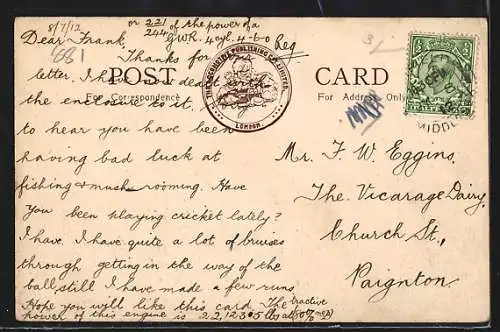 8/7/12
or 221/244 of the power of a
G.W.R. 4 cyl. 4-6-0 Reg
3/-
681
Dear Frank,
Thanks for
letter. I have dealt with
the enclosure to it.
to hear you have been
having bad luck at
fishing & mushrooming. Have
you been playing cricket lately?
I have. I have quite a lot of bruises
through getting in the way of the
ball, still I have made a few runs.
Hope you will like this card. The tractive
power of this engine is 22,123.5 lbs at
POST CARD
For Correspondence For Address Only
THE LOCOMOTIVE PUBLISHING CO. LIMITED.
LONDON.
MIDDL
Mr. F. W. Eggins,
The Vicarage Dairy,
Church St.,
Paignton.